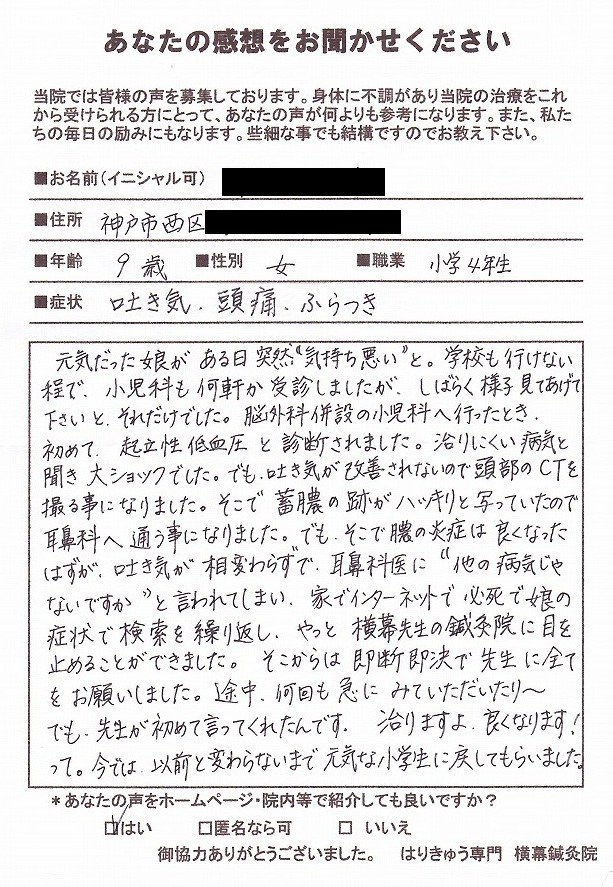 あなたの感想をお聞かせください
当院では皆様の声を募集しております。身体に不調があり当院の治療をこれ
から受けられる方にとって、あなたの声が何よりも参考になります。また、私た
ちの毎日の励みにもなります。些細な事でも結構ですのでお教え下さい。
■お名前(イニシャル可)
■住所 神戸市西区
■年齢 9歳 ■性別 女 ■職業 小学4年生
■症状 吐き気、頭痛、ふらつき
元気だった娘がある日突然“気持ち悪い”と。学校も行けない
程で、小児科も何軒か受診しましたが、しばらく様子見てあげて
下さいと、それだけでした。脳外科併設の小児科へ行ったとき、
初めて、起立性低血圧と診断されました。治りにくい病気と
聞き大ショックでした。でも、吐き気が改善されないので頭部のCTを
撮る事になりました。そこで蓄膿の跡がハッキリと写っていたので
耳鼻科へ通う事になりました。でも、そこで膿の炎症は良くなった
はずが、吐き気が相変わらずで、耳鼻科医に“他の病気じゃ
ないですか”と言われてしまい、家でインターネットで必死で娘の
症状で検索を繰り返し、やっと横幕先生の鍼灸院に目を
止めることができました。そこからは即断即決で先生に全て
をお願いしました。途中、何回も急にみていただいたり〜
でも、先生が初めて言ってくれたんです。治りますよ、良くなります!
って。今では、以前と変わらないまで元気な小学生に戻してもらいました。
*あなたの声をホームページ・院内等で紹介しても良いですか?
☑はい □匿名なら可 □ いいえ
御協力ありがとうございました。 はりきゅう専門 横幕鍼灸院